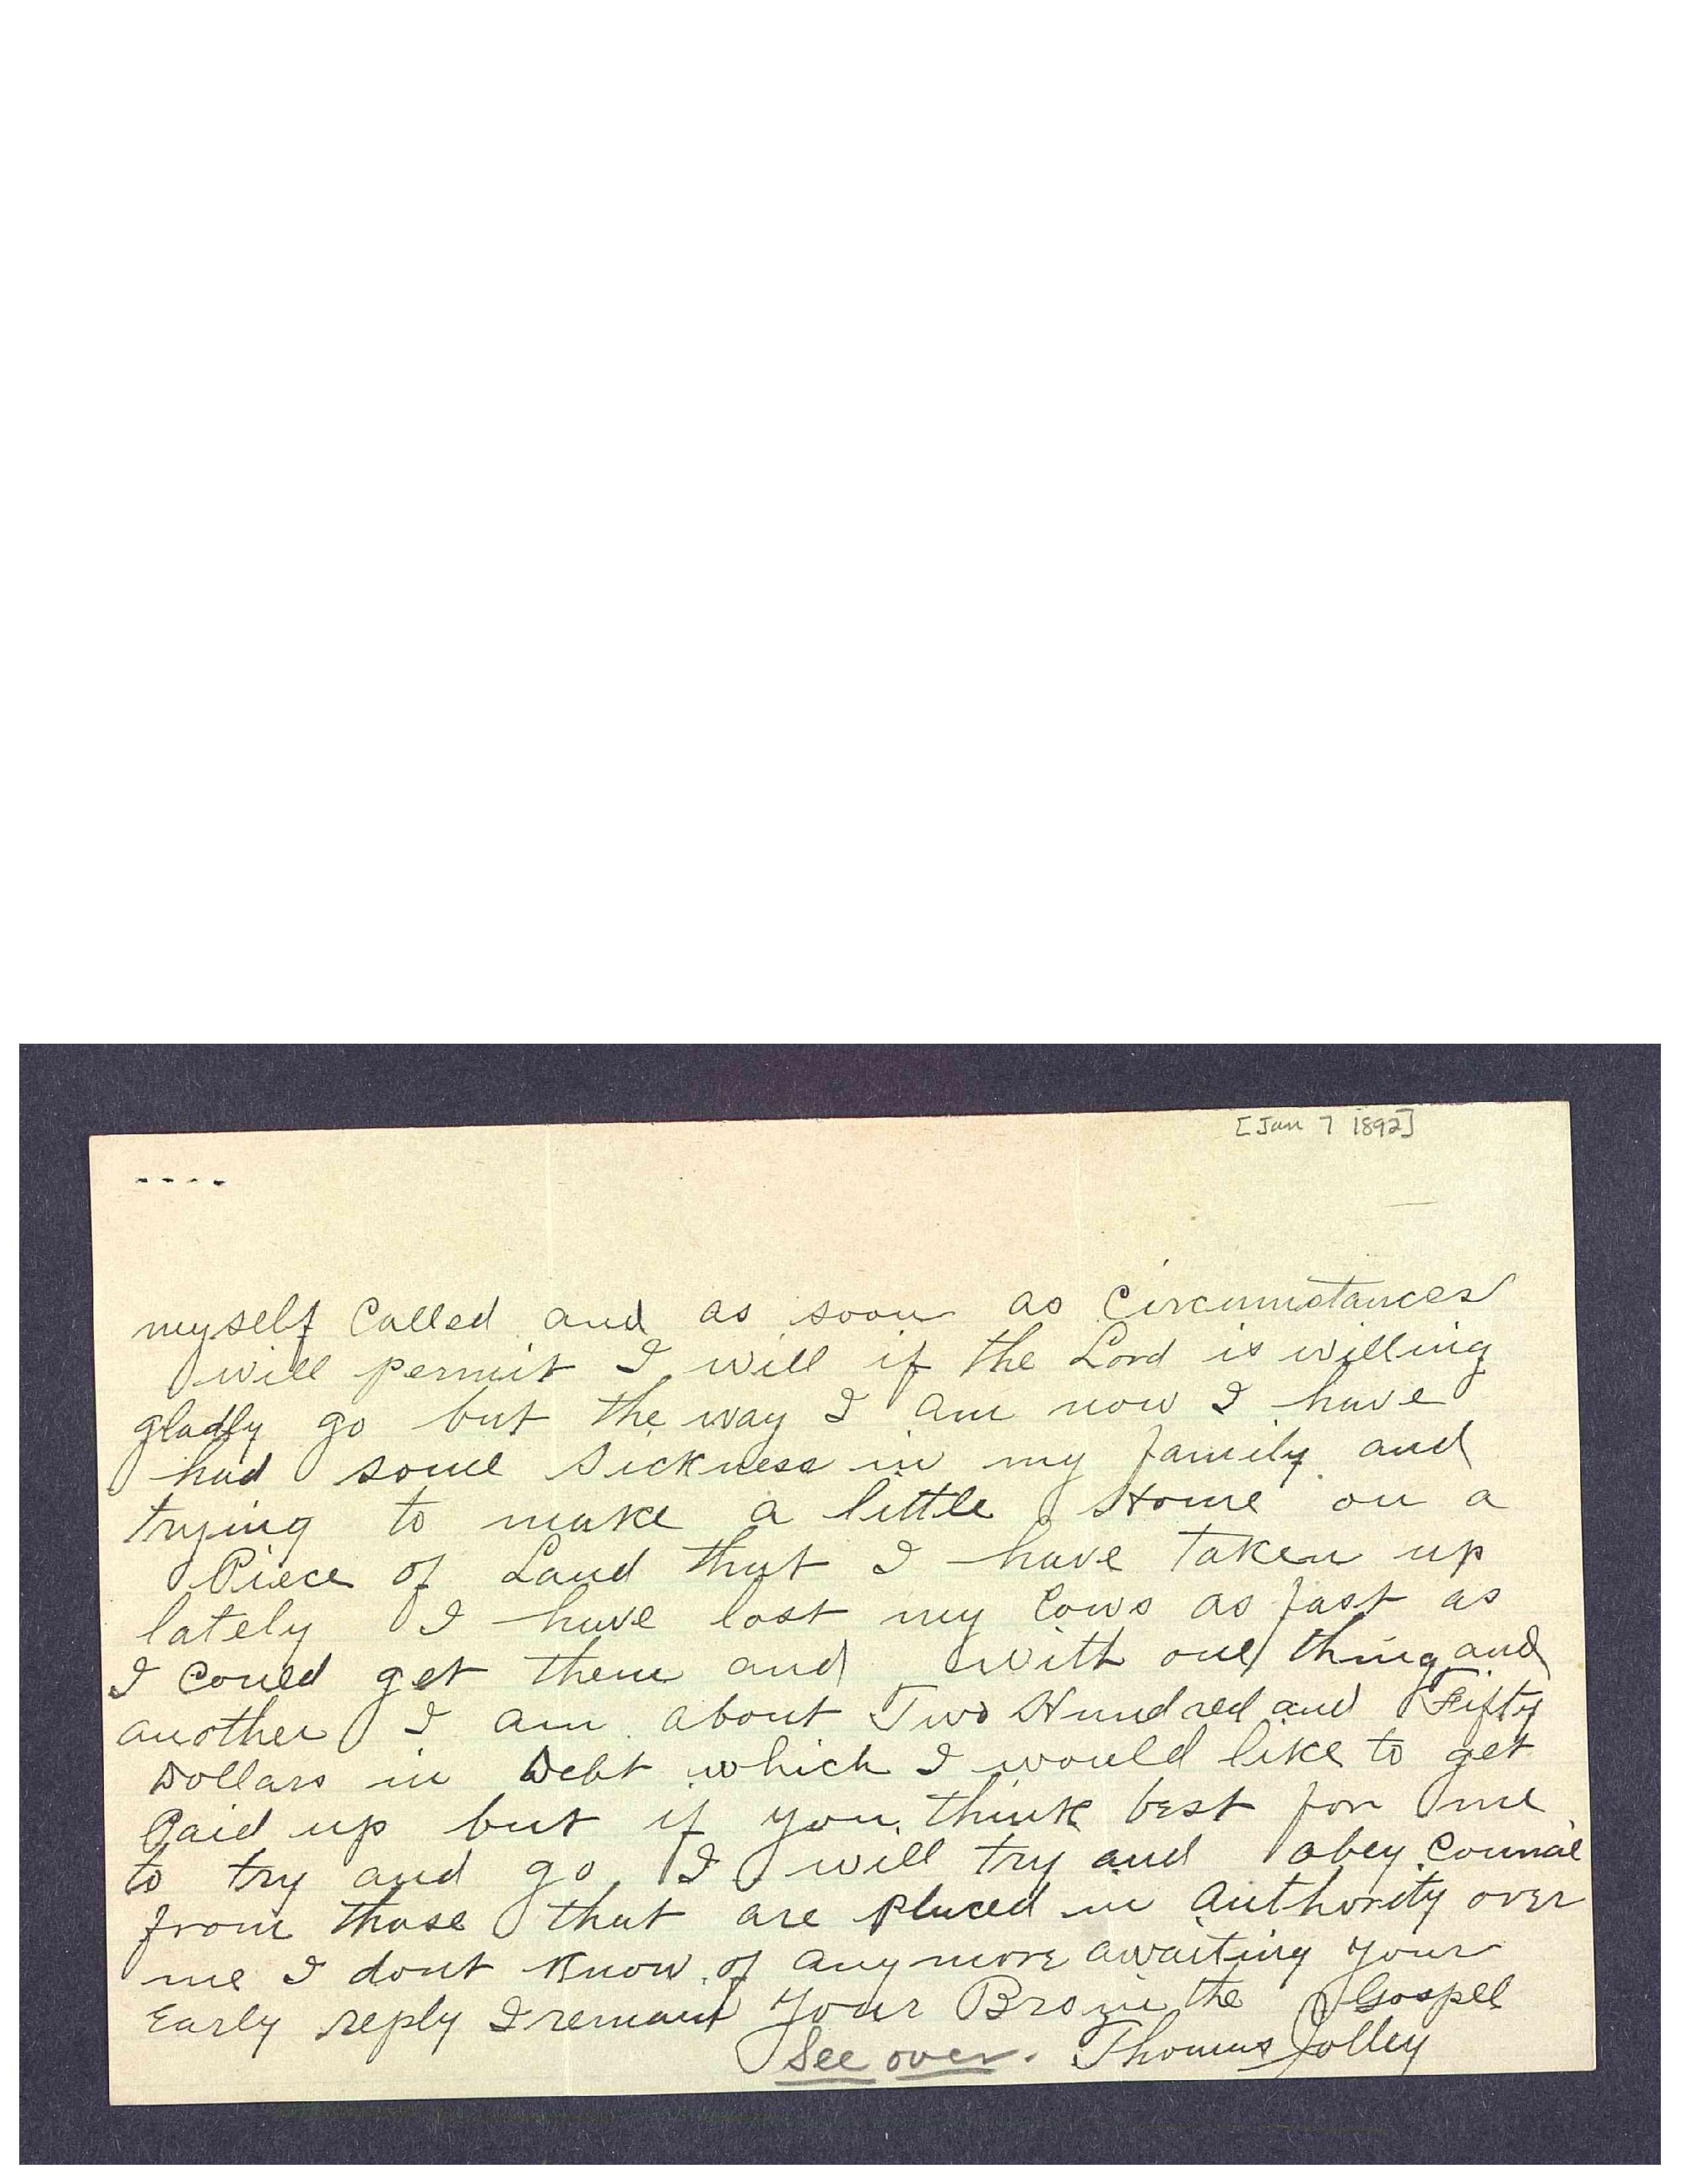 [Jan 7 1892]
myself Called and as soon as Circumstances
will permit I will if the Lord is willing
gladly go but the way I am now I have
had some Sickness in my family and
trying to make a little Home on a
Piece of Land that I have taken up
lately I have lost my Cows as fast as
I Could get them and with one thing and
another I am about Two Hundred and Fifty
Dollars in Debt which I would like to get
Paid up but if you think best for me
to try and go I will try and obey Council
from those that are placed in Authority over
me I dont Know of any more awaiting your
Early reply I remain your Bro in the Gospel
See over. Thomas Jolley